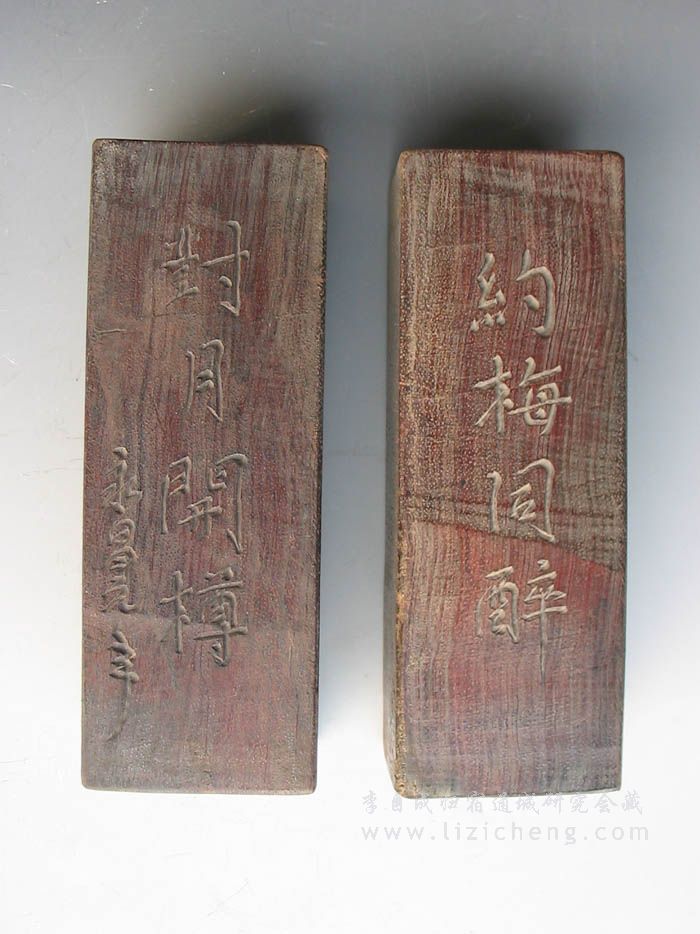 約梅同醉
對月開樽
永昌元年
李自成归宿通城研究会藏
www.lizicheng.com